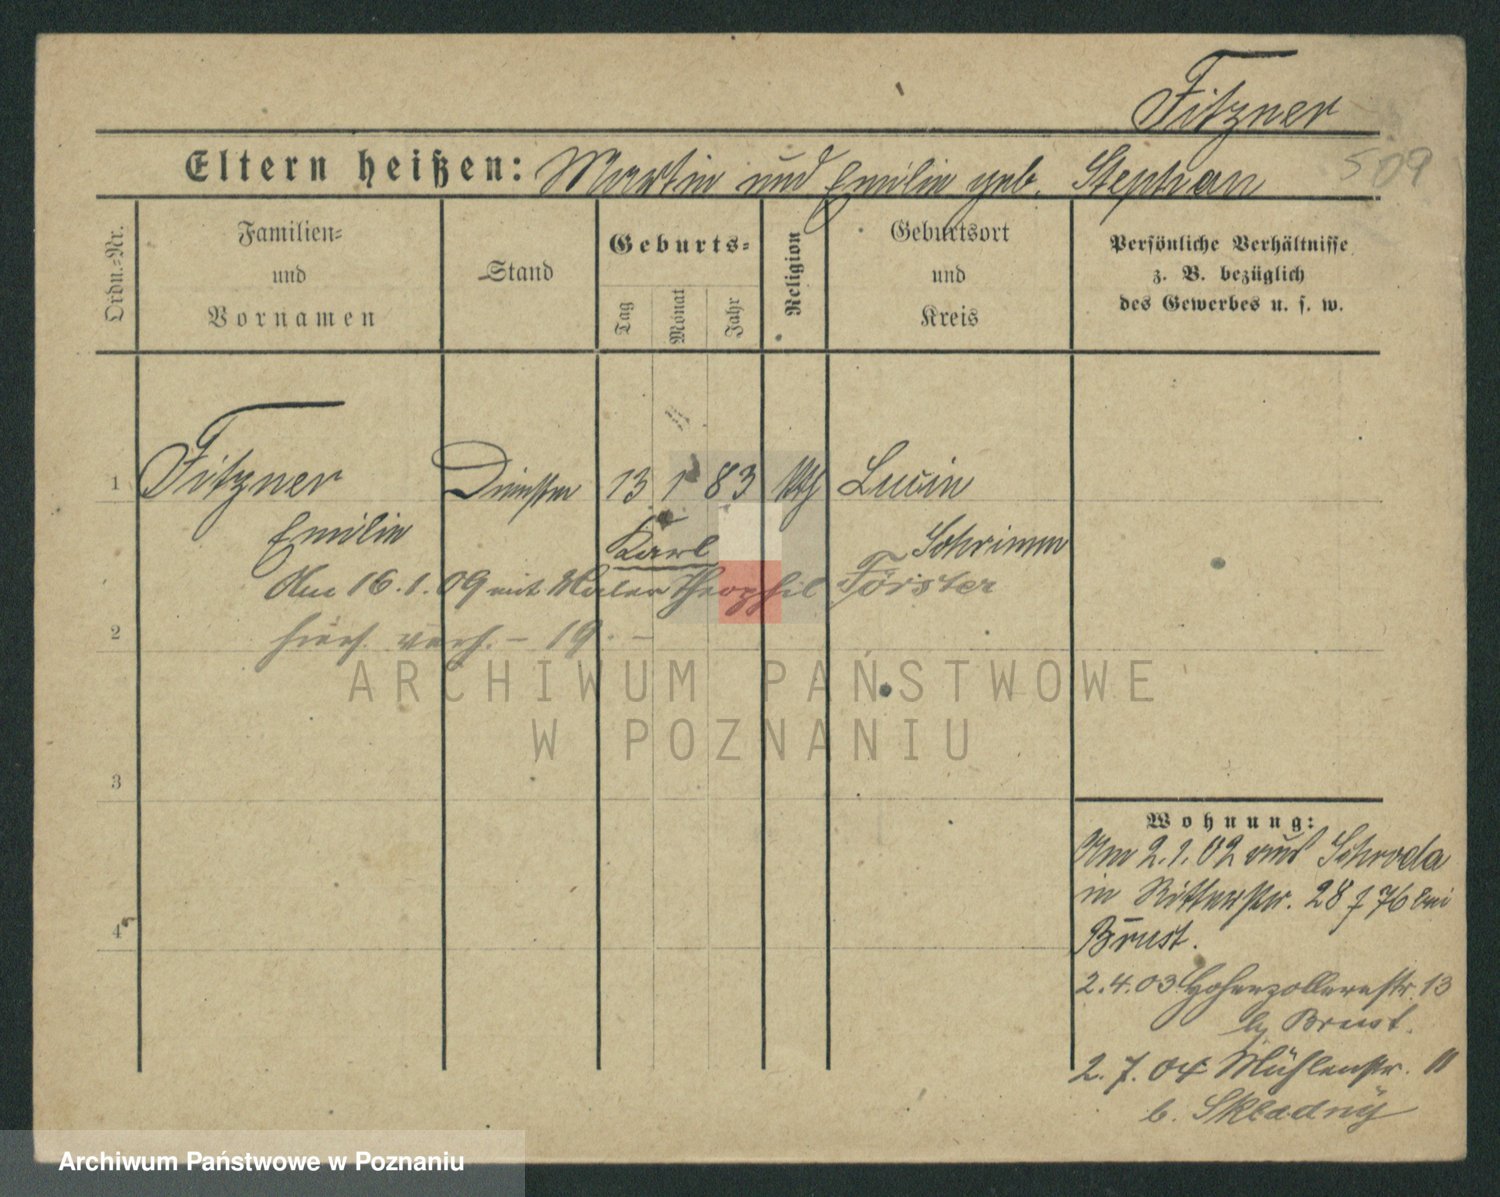 Fitzner
509
Eltern heißen: Martin und Emilie geb. Stephan
Ordn.-Nr.
Familien-
und
Vornamen
Stand
Geburts-
Tag
Monat
Jahr
Religion
Geburtsort
und
Kreis
Persönliche Verhältnisse
z. B. bezüglich
des Gewerbes u. s. w.
1
Fitzner
13 1 83
Emilie
Schrimm
Karl
Am 16.1.09 mit Maler Theophil Förster
2
hier verh. – 19 . –
ARCHIWUM PAŃSTWOWE
W POZNANIU
3
4
Wohnung:
Am 2.1.02 aus Schroda
in Ritterstr. 28 f 76 bei
Brust.
2.4.03 Hohenzollernstr. 13
b/ Brust.
2.7.04 Mühlenstr. 11
b. Składny
Archiwum Państwowe w Poznaniu